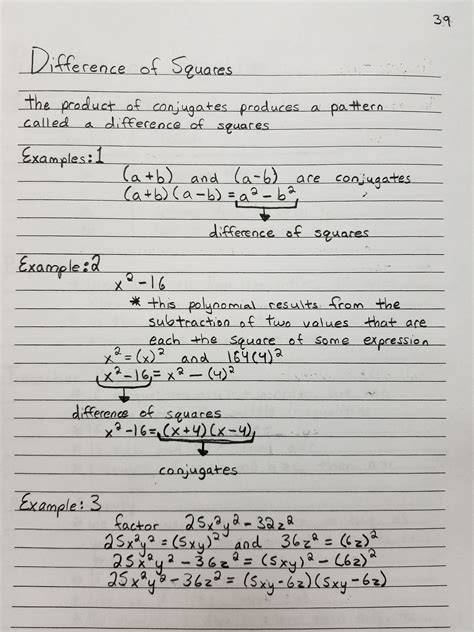 39
Difference of Squares
the product of conjugates produces a pattern
called a difference of squares
Examples:1
(a+b) and (a-b) are conjugates
(a+b)(a-b) = a² - b²
difference of squares
Example:2
x² -16
* this polynomial results from the
subtraction of two values that are
each the square of some expression
x² = (x)² and 164(4)²
x² -16, = x² - (4)²
difference of squares
x² -16 = (x+4)(x-4)
conjugates
Example: 3
factor 25x²y² - 32z²
25x²y² = (5xy)² and 36z² = (6z)²
25x²y² - 36z² = (5xy)² - (6z)²
25x²y² - 36z² = (5xy-6z)(5xy-6z)